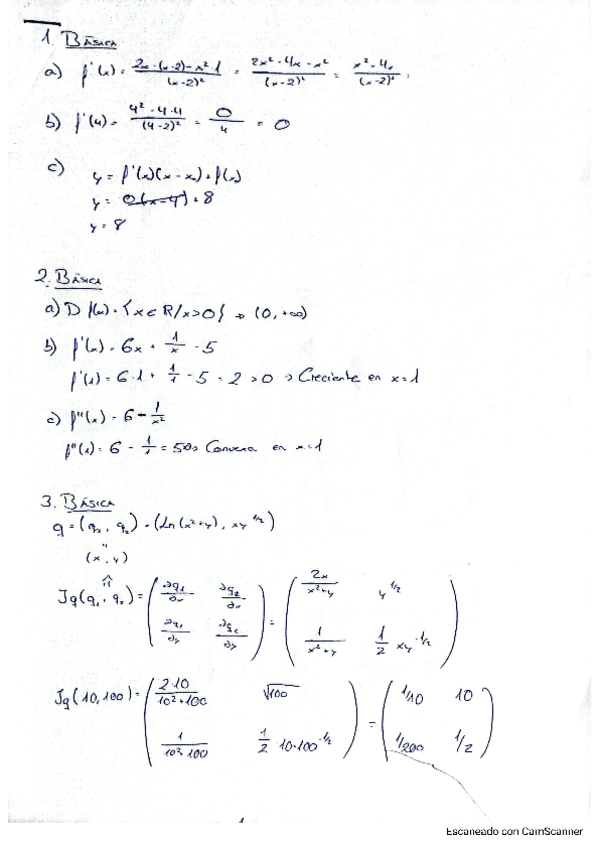 1. BÁSICA
a) f'(x) = 2x·(x-2)-x²·1 / (x-2)² = 2x²-4x-x² / (x-2)² = x²-4x / (x-2)²
b) f'(4) = 4²-4·4 / (4-2)² = 0/4 = 0
c)
y = f'(x)(x-x₀)+f(x)
y = 0(x-4)+8
y = 8
2. BÁSICA
a) D f(x) = {x ∈ R/x>0} → (0, +∞)
b) f'(x) = 6x + 1/x - 5
f'(1) = 6·1 + 1/1 - 5 = 2 > 0 → Creciente en x=1
c) f''(x) = 6 - 1/x²
f''(1) = 6 - 1/1 = 5 > 0 → Convexa en x=1
3. BÁSICA
g = (g₁, g₂) = (Ln(x²+y), xy^1/2)
"
(x, y)
Jg(g₁, g₂) = ( ∂g₁/∂x ∂g₂/∂x ) = ( 2x/x²+y y^1/2 )
( ∂g₁/∂y ∂g₂/∂y ) ( 1/x²+y 1/2 xy^-1/2 )
Jg(10,100) = ( 2·10/10²+100 √100 ) = ( 1/10 10 )
( 1/10²+100 1/2 10·100^-1/2 ) ( 1/200 1/2 )
Escaneado con CamScanner